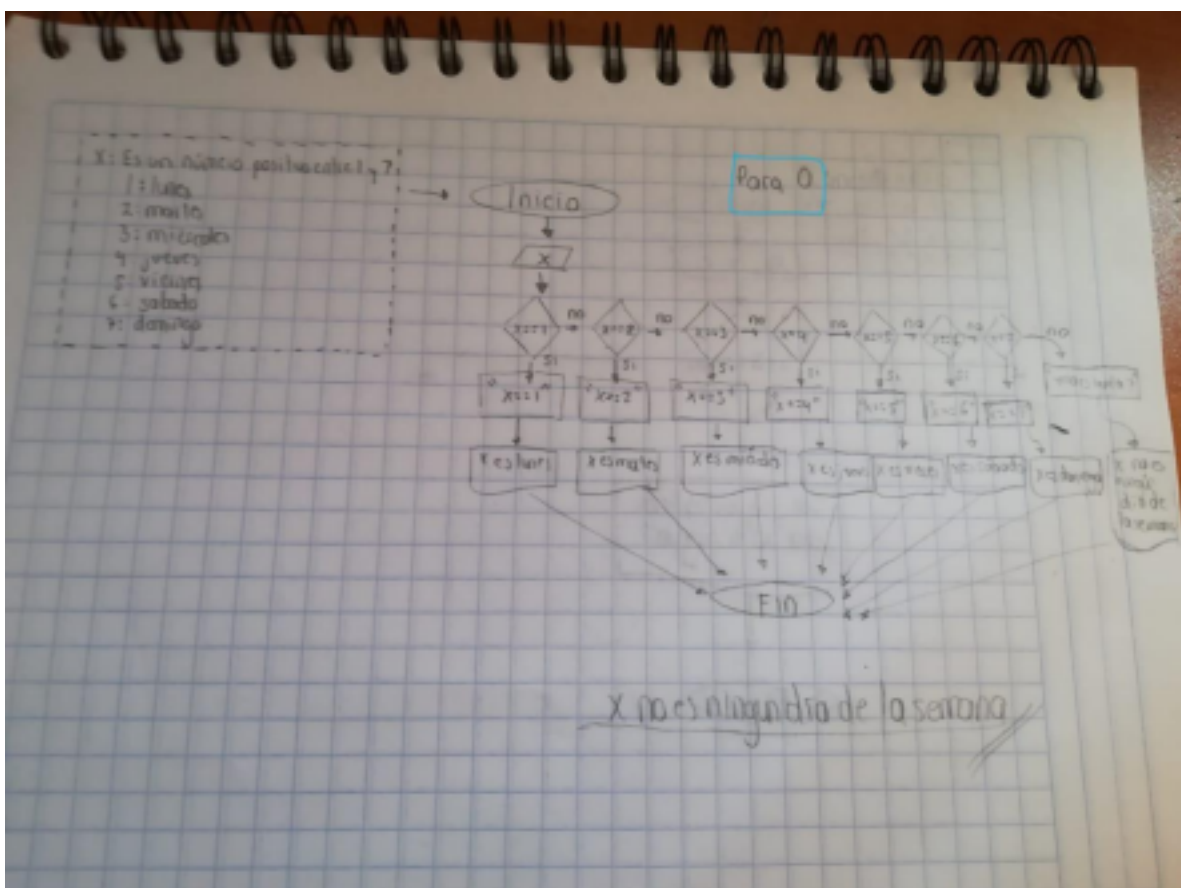 x: Es un número positivo entre 1 y 7.
1: lunes
2: martes
3: miercoles
4: jueves
5: viernes
6: sabado
7: domingo
Para 0
Inicio
x
x==1 no x==2 no x==3 no x==4 no x==5 no x==6 no x==7 no
si si si si si si
"x==1" "x==2" "x==3" "x==4" "x==5" "x==6"
x es lunes x es martes x es x es x es x es sabado x es x no es
dia de
la semana
Fin
x no es ningun dia de la semana